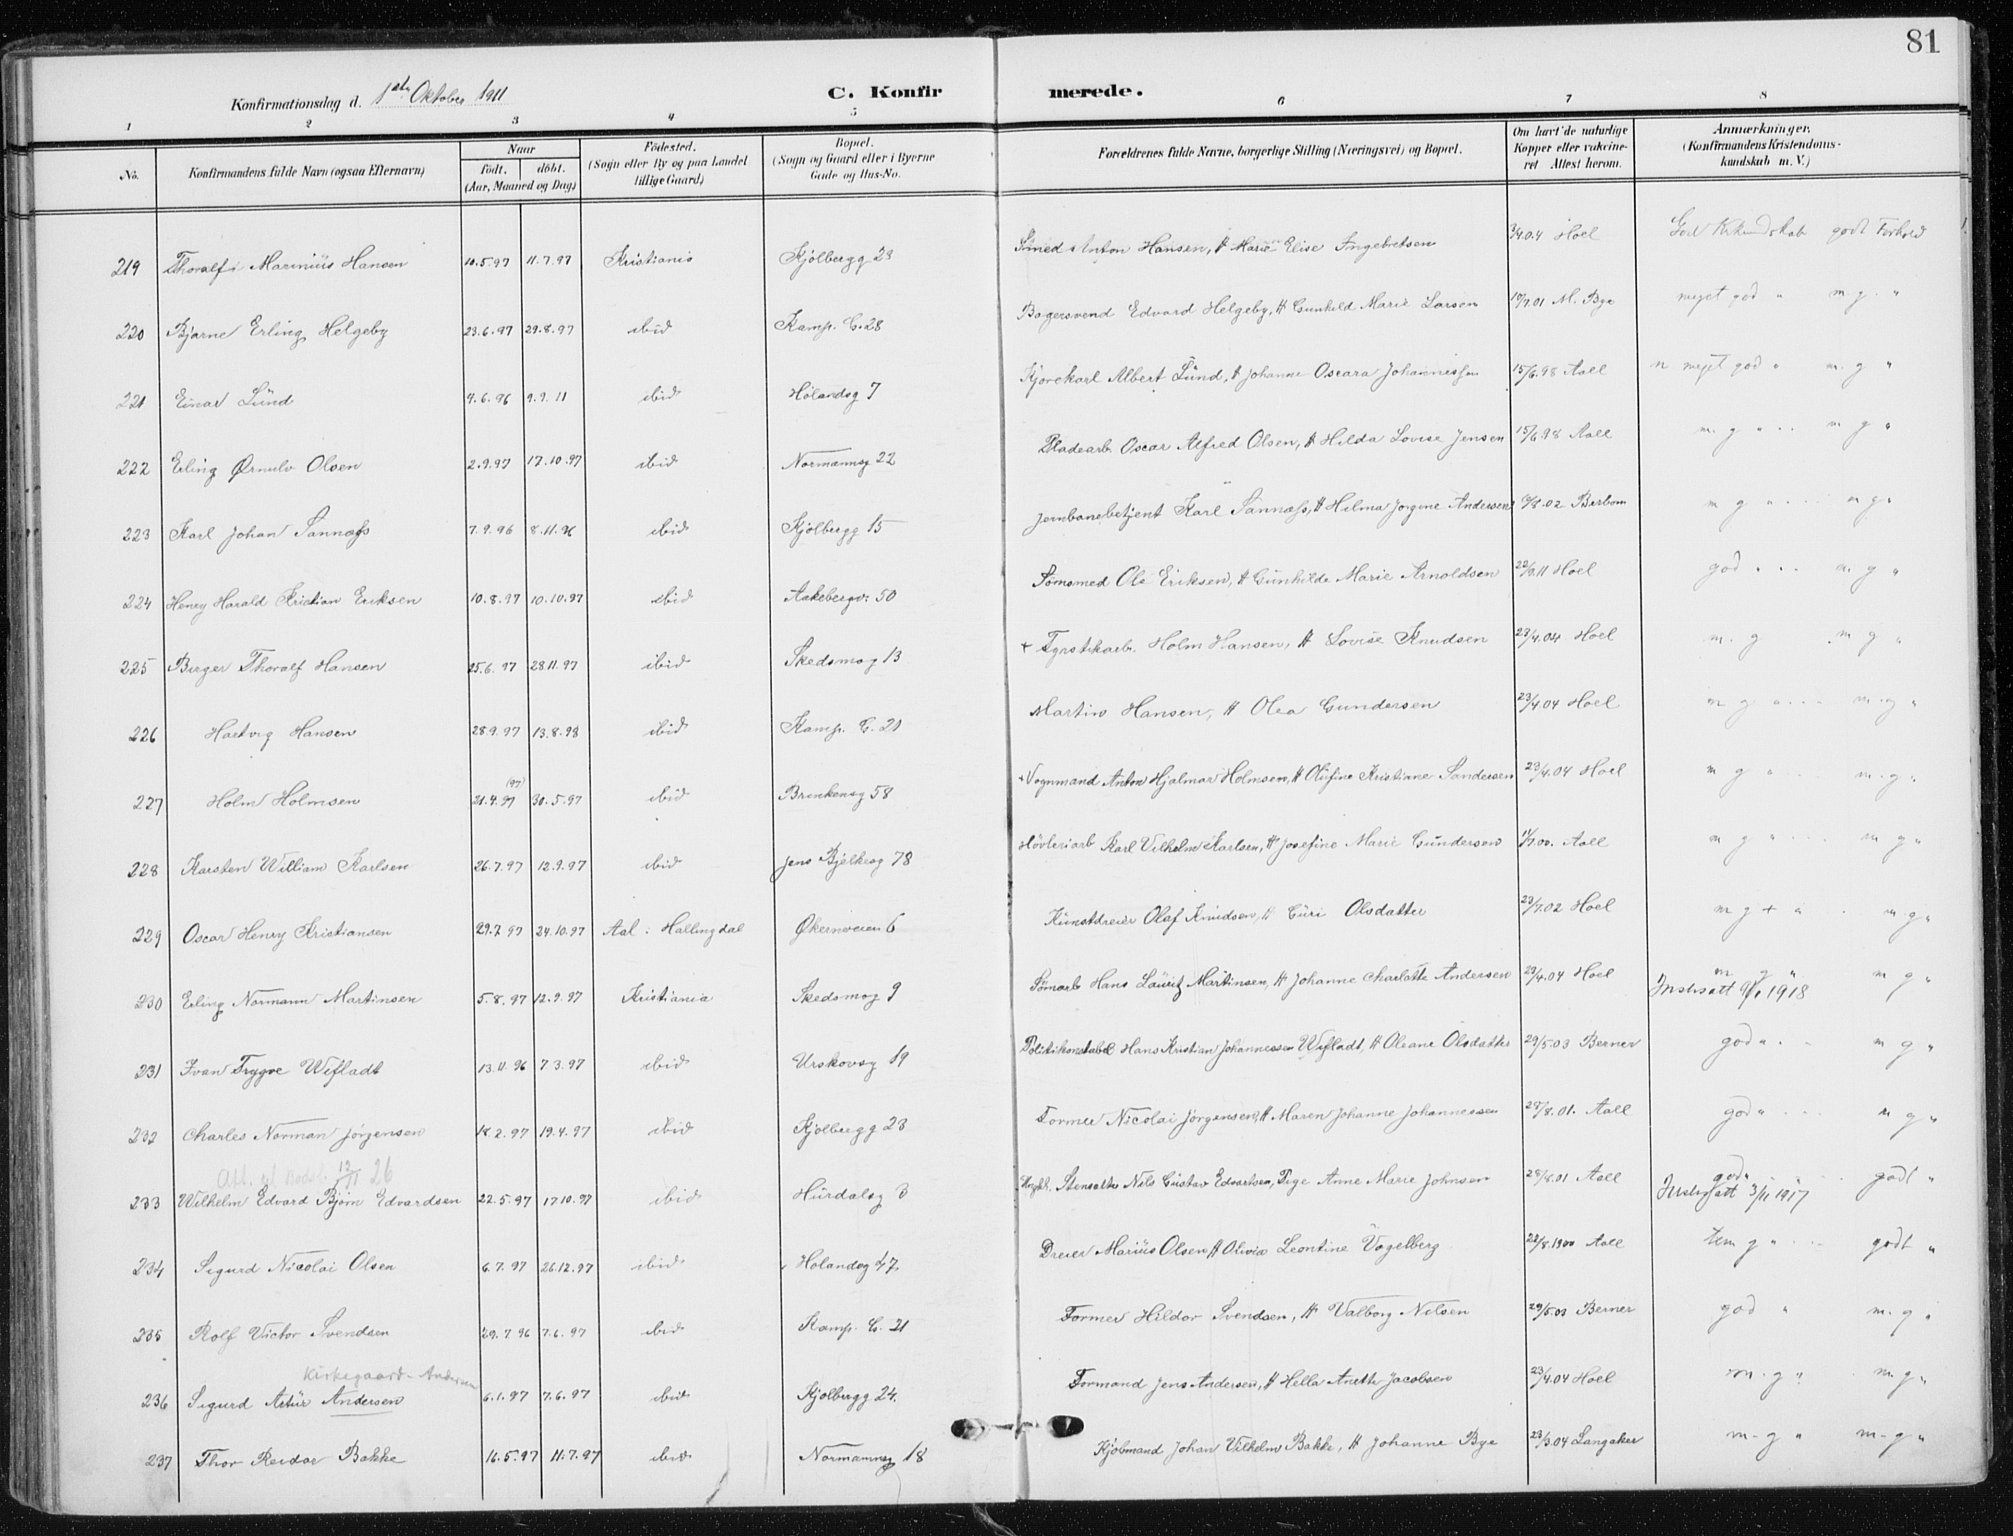 81
Konfirmationsdag d. 1ste Oktober 1911 C. Konfir merede.
1 2 3 4 5 6 7 8
No. Konfirmandens fulde Navn (ogsaa Efternavn) Naar födt. döbt. (Aar, Maaned og Dag) Födested. (Sogn eller By og paa Landet tillige Gaard) Bopæl. (Sogn og Gaard eller i Byerne Gade og Hus-No. Forældrenes fulde Navne, borgerlige Stilling (Næringsvei) og Bopæl. Om havt de naturlige Kopper eller vaccineret Attest herom. Anmærkninger. (Konfirmandens Kristendomskundskab m. V.)
219 Thoralf Marinius Hansen 10.5.97 11.7.97 Kristiania Kjölbergg 23 Smed Anton Hansen, H Marie Elise Ingebretsen 3/4.04 Hoel God Kundskab godt Forhold
220 Bjarne Erling Helgeby 23.6.97 29.8.97 ibid Kamp. G. 28 Bagersvend Edvard Helgeby, H Gunhild Marie Larsen 19/7.01 M. Bye meget god " m g. "
221 Einar Lund 4.6.96 9.9.11 ibid Hölandsg 7 Kjörekarl Albert Lund, H Johanne Oscara Johannessen 15/6.98 Aall meget god " m. g "
222 Erling Ørnulv Olsen 2.9.97 17.10.97 ibid Normannsg 22 Pladearb. Oscar Alfred Olsen, H Hilda Lovise Jensen 15/6.98 Aall m. g " m g "
223 Karl Johan Sannæss 7.9.96 8.11.96 ibid Kjölbergg 15 Jernbanebetjent Karl Sannæss, H Hilma Jörgine Andersen /8.02 Berbom m g " m g "
224 Henry Harald Kristian Eriksen 10.8.97 10.10.97 ibid Aakebergv. 50 Sömsmed Ole Eriksen, H Gunhilde Marie Arnoldsen 22/9.11 Hoel god " m g "
225 Birger Thoralf Hansen 25.6.97 28.11.97 ibid Skedsmog 13 + Fyrstikarb. Holm Hansen, H Lovise Knudsen 23/4.04 Hoel m. g m g "
226 Hartvig Hansen 28.9.97 13.8.98 ibid Kamp. G. 21 Martin Hansen, H Olea Gundersen 23/4.04 Hoel m g " m. g "
227 Holm Holmsen 21.4.97 (97) 30.5.97 ibid Brinkensg 58 Vognmand Anton Hjalmar Holmsen, H Olufine Kristiane Sandersen 23/4.04 Hoel m g " m. g "
228 Karsten William Karlsen 26.7.97 12.9.97 ibid Jens Bjelkesg 78 Hövleriarb Karl Vilhelm Karlsen, H Josefine Marie Gundersen 11/7.00. Aall m g " m g "
229 Oscar Henry Kristiansen 29.7.97 24.10.97 Aal i Hallingdal Økernveien 6 Kunstdreier Olaf Knudsen, H Guri Olsdatter 23/7.02 Hoel m g + " m g "
230 Erling Normann Martinsen 5.8.97 12.9.97 Kristiania Skedsmog 9 Sömarb Hans Lauritz Martinsen, H Johanne Charlotte Andersen 29/4.04 Hoel m g " m g "
1918
231 Ivan Trygve Wefladt 13.11.96 7.3.97 ibid Urskovsg 19 Politikonstabel Hans Kristian Johannessen Wefladt, H Oleane Olsdatter 29/5.03 Berner god " m g "
232 Charles Norman Jörgensen 18.2.97 19.4.97 ibid Kjölbergg 23 Former Nicolai Jörgensen, H Maren Johanne Johannessen 28/8.01. Aall god " m g "
Att. 12/11 26
233 Wilhelm Edvard Bjørn Edvardsen 22.5.97 17.10.97 ibid Hurdalsg 3 Ungk. Stensætter Nils Gustav Edvartsen, Pige Anne Marie Johnsen 28/8.01 Aall god " godt "
3/11 1917
234 Sigurd Nicolai Olsen 6.7.97 26.12.97 ibid Hölandsg 47 Dreier Marius Olsen, H Olivia Leontine Vogelberg 22/8.1900 Aall tem g " godt "
235 Rolf Victor Svendsen 29.7.96 7.6.97 ibid Kamp. G. 21 Former Hildor Svendsen, H Valborg Nilsen 29/5.03 Berner god " m. g "
Kirkegaard-Andersen
236 Sigurd Artur Andersen 6.1.97 7.6.97 ibid Kjölbergg 24. Formand Jens Andersen, H Hella Anette Jacobsen 23/4.04 Hoel m. g " m g "
237 Thor Reidar Bakke 16.5.97 11.7.97 ibid Normannsg 18 Kjöbmand Johan Vilhelm Bakke, H Johanne Bye 23/3.04 Langaker m-g " m-g "